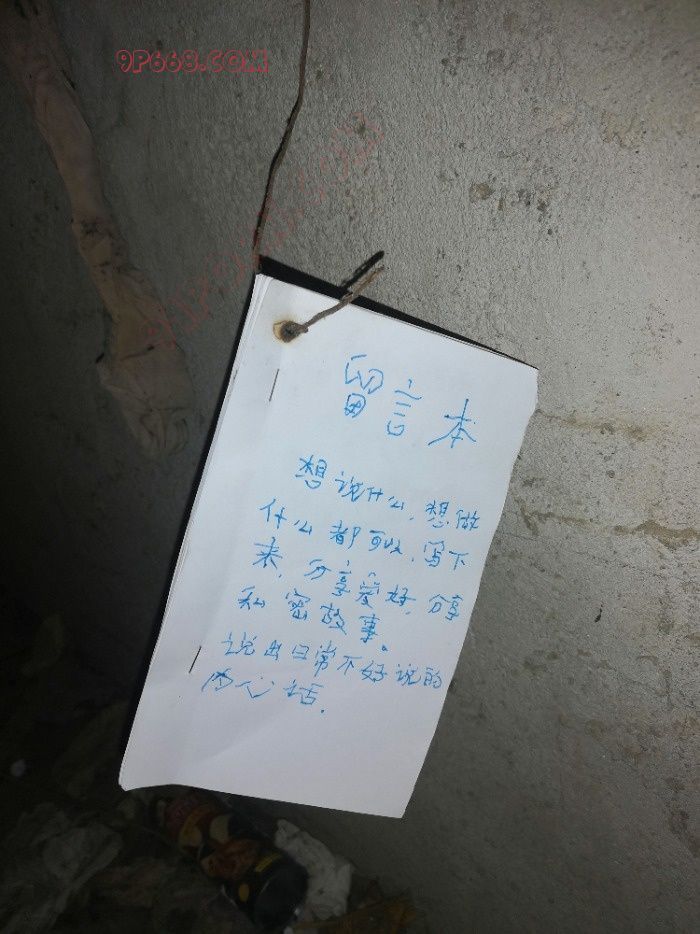 9P668.COM
留言本
想说什么,想做
什么都可以,写下
来,分享爱好,分享
私密故事。
说出日常不好说的
内心话.